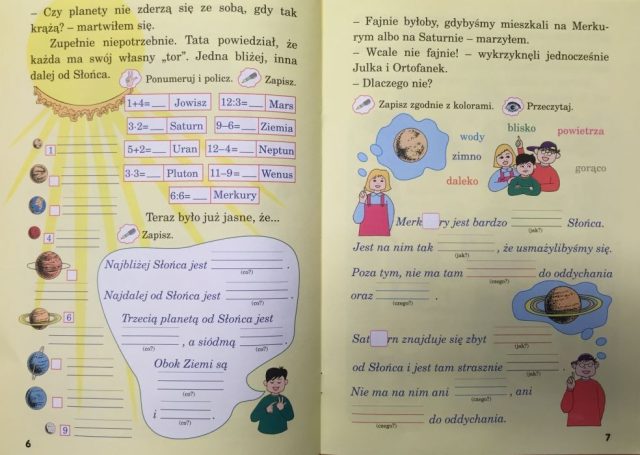 – Czy planety nie zderzą się ze sobą, gdy tak
krążą? – martwiłem się.
Zupełnie niepotrzebnie. Tata powiedział, że
każda ma swój własny „tor". Jedna bliżej, inna
dalej od Słońca.
Ponumeruj i policz. Zapisz.
1+4=___ Jowisz 12:3=___ Mars
3·2=___ Saturn 9–6=___ Ziemia
5+2=___ Uran 12–4=___ Neptun
3·3=___ Pluton 11–9=___ Wenus
6:6=___ Merkury
1
4
6
9
Teraz było już jasne, że...
Zapisz.
Najbliżej Słońca jest ___ .
(co?)
Najdalej od Słońca jest ___ .
(co?)
Trzecią planetą od Słońca jest
___ , a siódmą ___ .
(co?) (co?)
Obok Ziemi są
___
(co?)
i ___ .
(co?)
6
– Fajnie byłoby, gdybyśmy mieszkali na Merku-
rym albo na Saturnie – marzyłem.
– Wcale nie fajnie! – wykrzyknęli jednocześnie
Julka i Ortofanek.
– Dlaczego nie?
Zapisz zgodnie z kolorami. Przeczytaj.
wody blisko powietrza
zimno gorąco
daleko
Merk ry jest bardzo ___ Słońca.
(jak?)
Jest na nim tak ___ , że usmażylibyśmy się.
(jak?)
Poza tym, nie ma tam ___ do oddychania
(czego?)
oraz ___ .
(czego?)
Sat rn znajduje się zbyt ___
(jak?)
od Słońca i jest tam strasznie ___ .
(jak?)
Nie ma na nim ani ___ , ani
(czego?)
___ do oddychania.
(czego?)
7